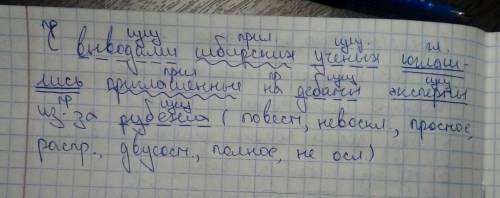 пр сущ прил. сущ. гл.
С выводами сибирских ученых соглаши-
прил пр сущ сущ
лись приглашенные на дебаты эксперты
пр сущ
из-за рубежа (повест., невоскл., простое,
распр., двусост., полное, не осл)